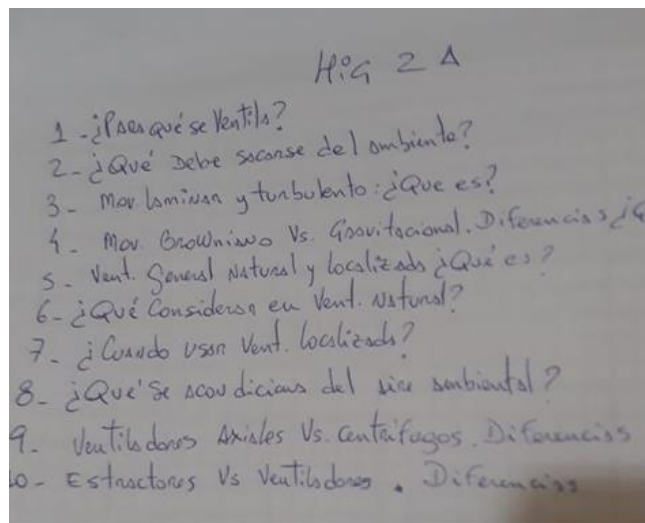 Hig 2A
1 - ¿Para qué se Ventila?
2 - ¿Qué Debe sacarse del ambiente?
3 - Mov. laminar y turbulento: ¿Que es?
4 - Mov. Browniano Vs. Gravitacional. Diferencias ¿Q
5 - Vent. General Natural y localizada ¿Qué es?
6 - ¿Qué Considerar en Vent. Natural?
7 - ¿Cuando usar Vent. localizada?
8 - ¿Qué se acondiciona del aire ambiental?
9 - Ventiladores Axiales Vs. Centrífugos. Diferencias
10 - Estractores Vs Ventiladores. Diferencias